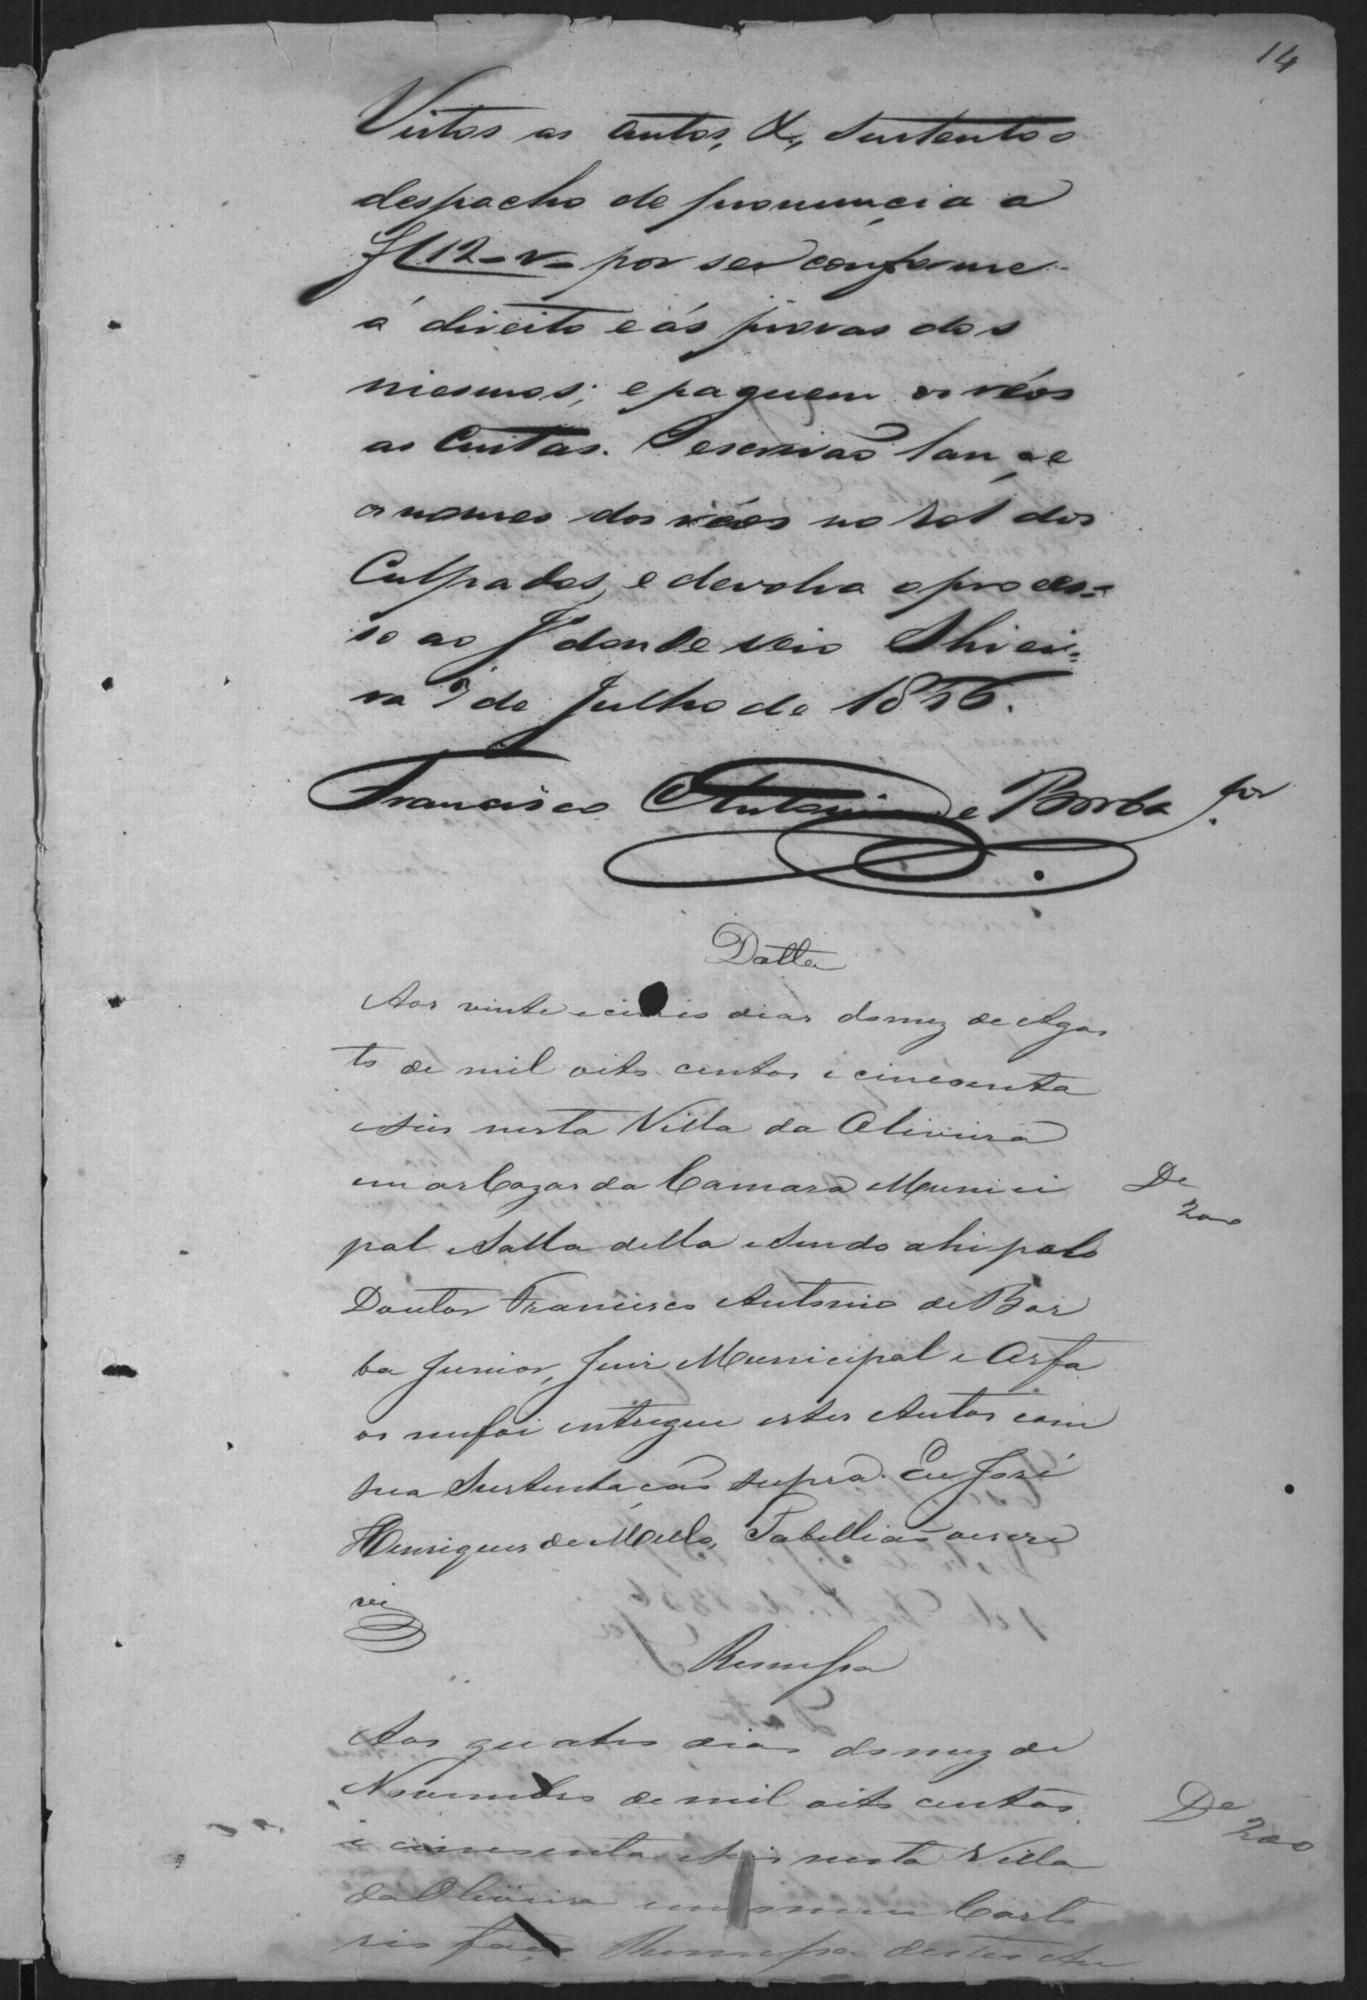 14
Vistos os autos, &, sustento o
despacho de pronuncia a
fl 12-v- por ser conforme
á direito e ás provas dos
mesmos; e paguem os réos
as Custas. O escrivaõ lance
os nomes dos réos no rol dos
Culpados, e devolva o proces=
so ao J.º donde veio Olivei=
ra 7 de Julho de 1856.
Francisco Antonio de Borba Jor.
Datta
Aos vinte e cinco dias do mez de Agos
to de mil oito centos e cincoenta
e seis nesta Villa da Oliveira
em os Pazos da Camara Munici
pal e Salla della e Sendo ahi pelo
De
200
Doutor Francisco Antonio de Bor
ba Junior, Juiz Municipal e Orfa
os me foi entregue estes Autos com
sua Sustentacaõ supra. Eu José
Henriques de Mello, Tabelliaõ o escre
vi
Remessa
Aos quatro dias do mez de
Novembro de mil oito centos
e cincoenta e seis nesta Villa
De
200
da Oliveira em meu Carto
rio faço Remessa destes Au